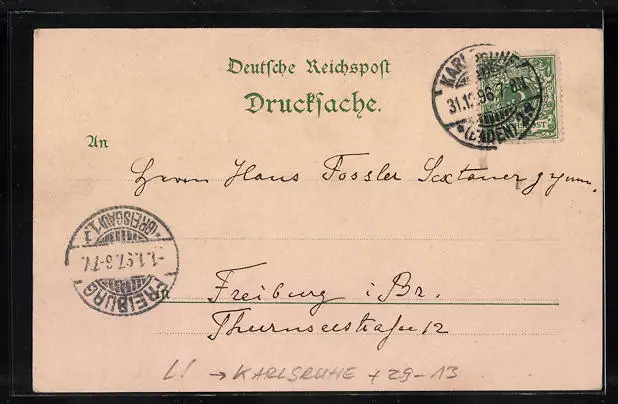 Deutsche Reichspost
Drucksache.
KARLSRUHE
31.12.96.7-8N
*(BADEN)2*
POST
An
Herrn Hans Fossler Sextaner gymn.
*(BREISGAU)1.*
-1.1.97.6-7V.
FREIBURG
in
Freiburg i. Br.
Thurnseestraße 12
L! → KARLSRUHE + 29-13